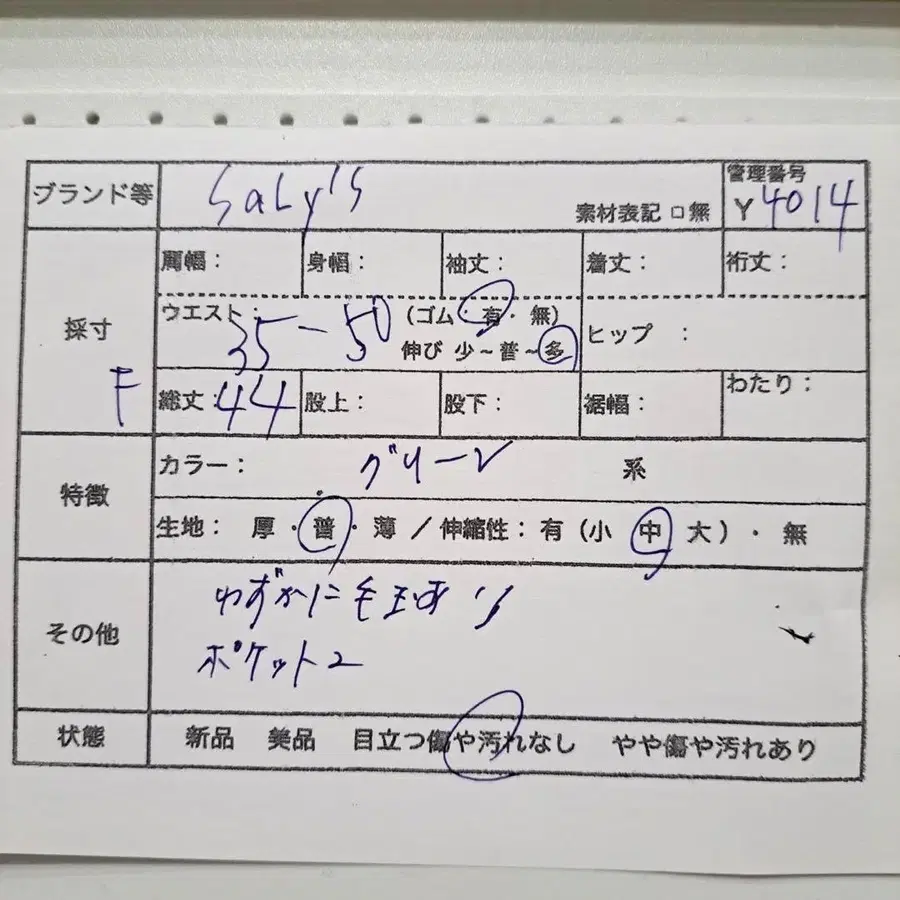 ブランド等 SaLy's 素材表記 □ 無 管理番号 Y 4014
採寸 F
肩幅： 身幅： 袖丈： 着丈： 裄丈：
ウエスト： 35-50 (ゴム・有・無) ヒップ ：
伸び 少～普～多
総丈：44 股上： 股下： 裾幅： わたり：
特徴 カラー： グリーン 系
生地： 厚・普・薄 / 伸縮性：有 (小 中 大)・無
その他 わずかに毛玉あり
ポケット2
状態 新品 美品 目立つ傷や汚れなし やや傷や汚れあり